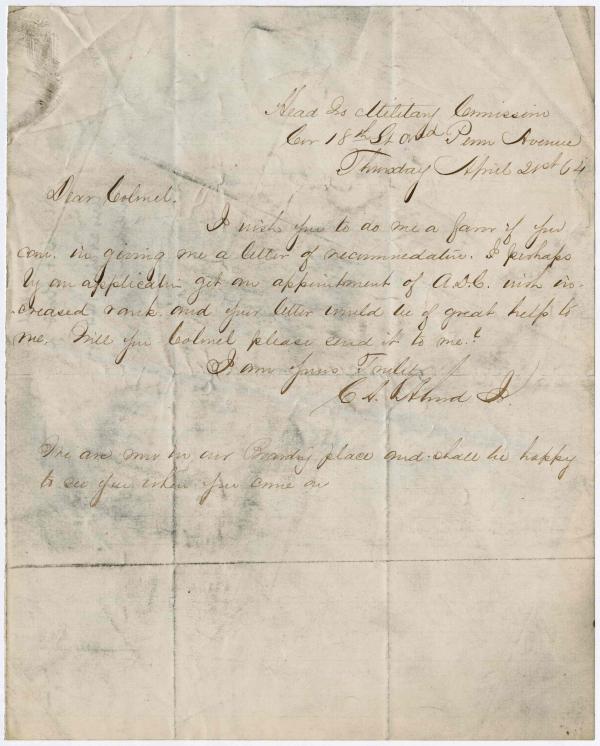 Head Qs Military Comission
Cor 18th St and Penn Avenue
Thursday April 21st 64
Dear Colonel.
I wish you to do me a favor if you
can. in giving me a letter of recommendation. I perhaps
by an application get an appointment of A.D.C. with in-
creased rank. and your letter would be of great help to
me. Will you Colonel please send it to me.?
I am Yours Truly
C A. Jr.
We are now in our Boarding place and shall be happy
to see you when you come on